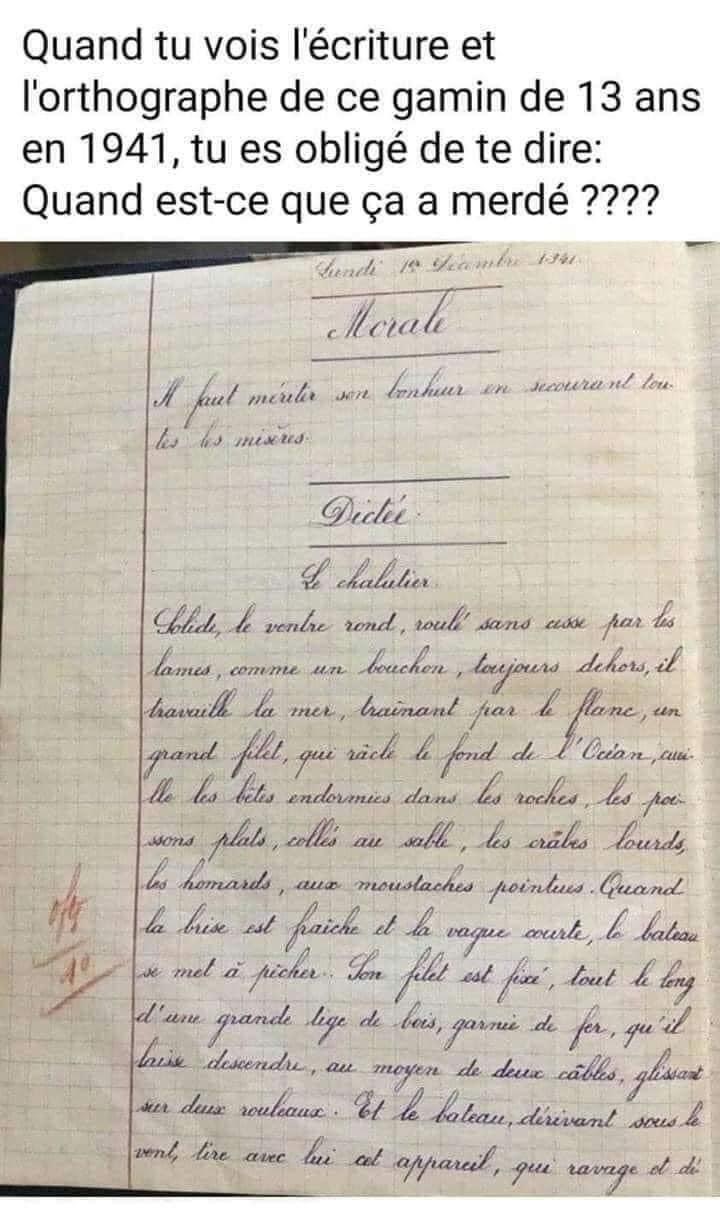 Quand tu vois l'écriture et
l'orthographe de ce gamin de 13 ans
en 1941, tu es obligé de te dire:
Quand est-ce que ça a merdé ????
Lundi 1er Décembre 1941.
Morale
Il faut mériter son bonheur en secourant tou-
tes les misères.
Dictée.
Le chalutier.
Solide, le ventre rond, roulé sans cesse par les
lames, comme un bouchon, toujours dehors, il
travaille la mer, traînant par le flanc, un
grand filet, qui râcle le fond de l'Océan, cuei-
lle les bêtes endormies dans les roches, les poi-
ssons plats, collés au sable, les crâbes lourds,
les homards, aux moustaches pointues. Quand
la brise est fraiche et la vague courte, le bateau
se met à pêcher. Son filet est fixé, tout le long
10
d'une grande tige de bois, garnie de fer, qu'il
laisse descendre, au moyen de deux câbles, glissant
sur deux rouleaux. Et le bateau, dérivant sous le
vent, tire avec lui cet appareil, qui ravage et dé